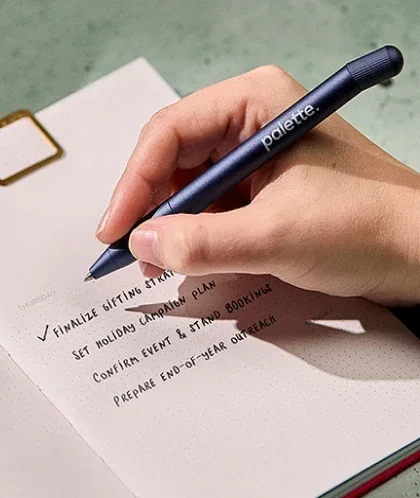 palette.
THURSDAY
✓ FINALIZE GIFTING
SET HOLIDAY CAMPAIGN PLAN
CONFIRM EVENT & STAND BOOKINGS
PREPARE END-OF-YEAR OUTREACH